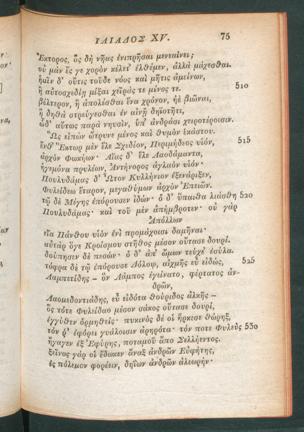 ΙΛΙΑΔΟΣ XV. 75
Ἕκτορος, ὃς δὴ νῆας ἐνιπρῆσαι μενεαίνει;
οὐ μὰν ἔς γε χορὸν κέλετ' ἐλθέμεν, ἀλλὰ μάχεσθαι.
ἡμῖν δ' οὔτις τοῦδε νόος καὶ μῆτις ἀμείνων,
ἢ αὐτοσχεδίῃ μῖξαι χεῖράς τε μένος τε. 510
βέλτερον, ἢ ἀπολέσθαι ἕνα χρόνον, ἠὲ βιῶναι,
ἢ δηθὰ στρεύγεσθαι ἐν αἰνῇ δηϊοτῆτι,
ὧδ' αὔτως παρὰ νηυσὶν, ὑπ' ἀνδράσι χειροτέροισιν.
Ὣς εἰπὼν ὤτρυνε μένος καὶ θυμὸν ἑκάστου.
ἔνθ' Ἕκτωρ μὲν ἕλε Σχεδίον, Περιμήδεος υἱὸν, 515
ἀρχὸν Φωκήων· Αἴας δ' ἕλε Λαοδάμαντα,
ἡγεμόνα πρυλέων, Ἀντήνορος ἀγλαὸν υἱόν·
Πουλυδάμας δ' Ὦτον Κυλλήνιον ἐξενάριξεν,
Φυλείδεω ἕταρον, μεγαθύμων ἀρχὸν Ἐπειῶν.
τῷ δὲ Μέγης ἐπόρουσεν ἰδών· ὁ δ' ὕπαιθα λιάσθη 520
Πουλυδάμας· καὶ τοῦ μὲν ἀπήμβροτεν· οὐ γὰρ
Ἀπόλλων
εἴα Πάνθου υἱὸν ἐνὶ προμάχοισι δαμῆναι·
αὐτὰρ ὅγε Κροίσμου στῆθος μέσον οὔτασε δουρί.
δούπησεν δὲ πεσών· ὁ δ' ἀπ' ὤμων τεύχε' ἐσύλα.
τόφρα δὲ τῷ ἐπόρουσε Δόλοψ, αἰχμῆς εὖ εἰδὼς, 525
Λαμπετίδης – ὃν Λάμπος ἐγείνατο, φέρτατος ἀν-
δρῶν,
Λαομεδοντιάδης, εὖ εἰδότα θούριδος ἀλκῆς –
ὃς τότε Φυλείδαο μέσον σάκος οὔτασε δουρί,
ἐγγύθεν ὁρμηθείς· πυκινὸς δέ οἱ ἤρκεσε θώρηξ,
τόν ῥ' ἐφόρει γυάλοισιν ἀρηρότα· τόν ποτε Φυλεὺς 530
ἤγαγεν ἐξ Ἐφύρης, ποταμοῦ ἄπο Σελλήεντος.
ξεῖνος γάρ οἱ ἔδωκεν ἄναξ ἀνδρῶν Εὐφήτης,
ἐς πόλεμον φορέειν, δηΐων ἀνδρῶν ἀλεωρήν·